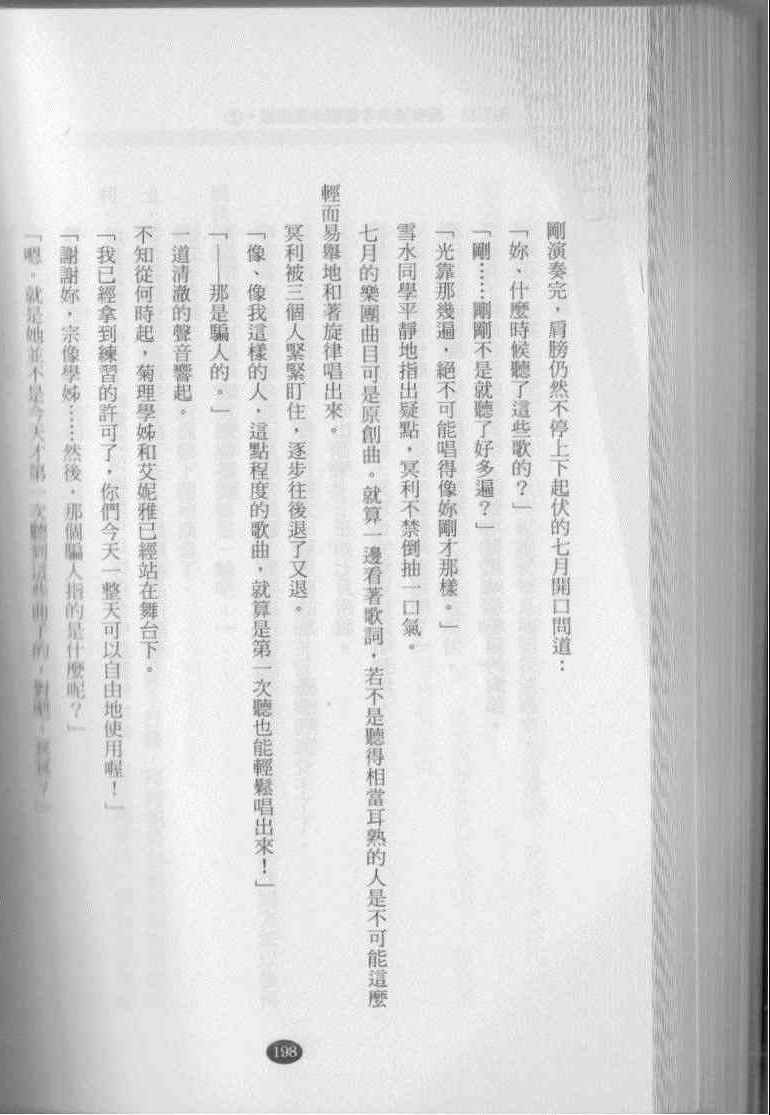 剛演奏完，肩膀仍然不停上下起伏的七月開口問道：
「妳、什麼時候聽了這些歌的？」
「剛……剛剛不是就聽了好多遍？」
「光靠那幾遍，絕不可能唱得像妳剛才那樣。」
雪水同學平靜地指出疑點，冥利不禁倒抽一口氣。
七月的樂團曲目可是原創曲。就算一邊看著歌詞，若不是聽得相當耳熟的人是不可能這麼
輕而易舉地和著旋律唱出來。
冥利被三個人緊緊盯住，逐步往後退了又退。
「像、像我這樣的人，這點程度的歌曲，就算是第一次聽也能輕鬆唱出來！」
「——那是騙人的。」
一道清澈的聲音響起。
不知從何時起，菊理學姊和艾妮雅已經站在舞台下。
「我已經拿到練習的許可了，你們今天一整天可以自由地使用喔！」
「謝謝妳，宗像學姊……然後，那個騙人指的是什麼呢？」
「嗯。就是她並不是今天才第一次聽到這些曲子的，對吧，冥利？」
198